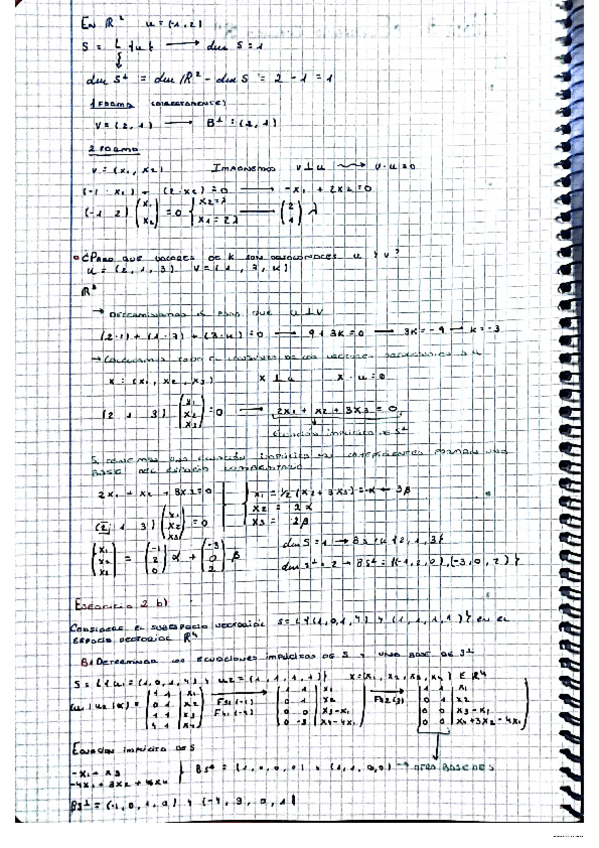 EN R² u = (-1, 2)
S = L {u} → dim S = 1
dim S⊥ = dim R² - dim S = 2 - 1 = 1
1 FORMA (DIRECTAMENTE)
V = (2, 1) → B⊥ = (2, 1)
2 FORMA
V = (x1, x2) IMAGINEMOS V⊥u V·u = 0
(-1 · x1) + (2 · x2) = 0 → -x1 + 2x2 = 0
(-1 2) (x1 x2) = 0 { x2 = λ x1 = 2λ → (2 1) λ
¿PARA QUE VALORES DE K SON ORTOGONALES u y v?
u = (2, 1, 3) v = (1, 7, k)
R³
→ DETERMINAMOS K PARA QUE u⊥v
(2·1) + (1·7) + (3·k) = 0 → 9 + 3k = 0 → 3k = -9 → k = -3
→ CALCULAMOS DE LOS VECTORES A u
x = (x1, x2, x3) x⊥u x·u = 0
(2 1 3) (x1 x2 x3) = 0 → 2x1 + x2 + 3x3 = 0
ECUACIÓN IMPLÍCITA DE S⊥
SI TENEMOS UNA ECUACIÓN IMPLÍCITA SUS COEFICIENTES FORMAN UNA
BASE DEL ESPACIO
2x1 + x2 + 3x3 = 0 x1 = 1/2 (x2 + 3x3) = -α - 3β
(2 1 3) (x1 x2 x3) = 0 x2 = 2α
x3 = 2β
(x1 x2 x3) = (-1 2 0) α + (-3 0 2) β
dim S = 1 → Bs = {2, 1, 3}
dim S⊥ = 2 → BS⊥ = {(-1, 2, 0), (-3, 0, 2)}
EJERCICIO 2 b)
CONSIDERE EL SUBESPACIO VECTORIAL S = L{(1, 0, 1, 4), (1, 1, 1, 1)} EN EL
ESPACIO VECTORIAL R⁴
B) DETERMINAR LAS ECUACIONES IMPLÍCITAS DE S Y UNA BASE DE S⊥
S = L{u1 = (1, 0, 1, 4), u2 = (1, 1, 1, 1)} x = (x1, x2, x3, x4) ∈ R⁴
(u1 | u2 | x) = (1 1 x1 / 0 1 x2 / 1 1 x3 / 4 1 x4) F31(-1) F41(-4) (1 1 x1 / 0 1 x2 / 0 0 x3-x1 / 0 -3 x4-4x1) F42(3) (1 1 x1 / 0 1 x2 / 0 0 x3-x1 / 0 0 x4+3x2-4x1)
ECUACIÓN IMPLÍCITA DE S
-x1 + x3
-4x1 + 3x2 + x4 } Bs = {(1, 0, 0, 0), (1, 1, 0, 0) → OTRA BASE DE S
BS⊥ = (-1, 0, 1, 0) y (-4, 3, 0, 1)